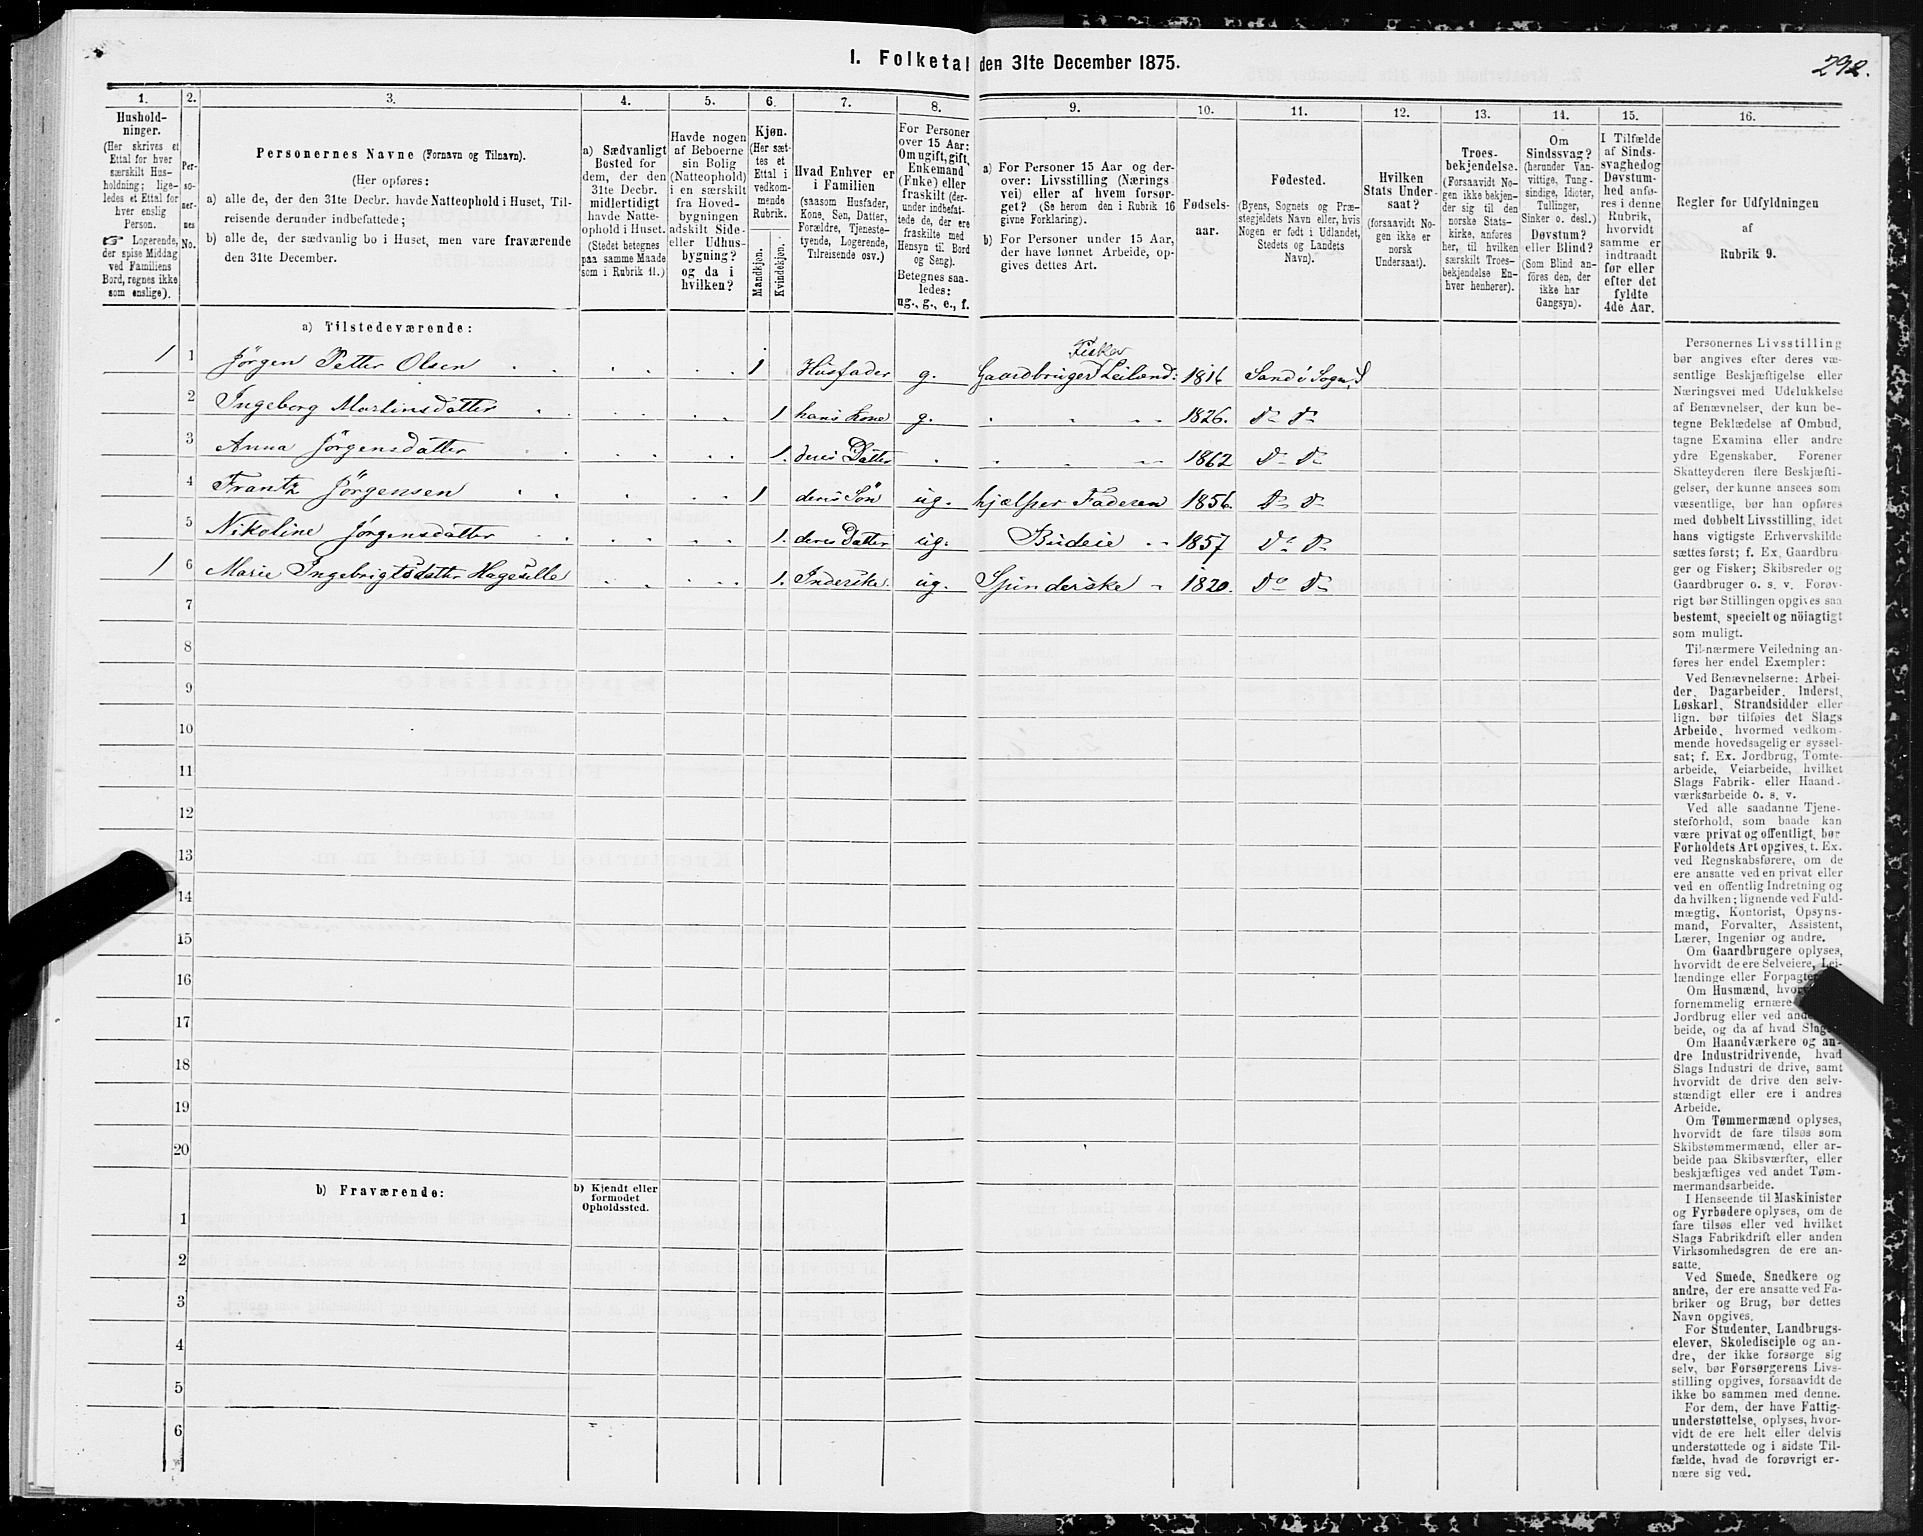 1. Folketal den 31te December 1875.
292.
1. 2. 3. 4. 5. 6. 7. 8. 9. 10. 11. 12. 13. 14. 15. 16.
Hushold-
ninger.
(Her skrives et
Ettal for hver
særskilt Hus-
holdning; lige-
ledes et Ettal for
hver enslig
Person.
☞ Logerende,
der spise Middag
ved Familiens
Bord, regnes ikke
som enslige).
Per-
so-
ner-
nes
No.
Personernes Navne (Fornavn og Tilnavn).
(Her opføres:
a) alle de, der den 31te Decbr. havde Natteophold i Huset, Til-
reisende derunder indbefattede;
b) alle de, der sædvanlig bo i Huset, men vare fraværende
den 31te December.
a) Sædvanligt
Bosted for
dem, der den
31te Decbr.
midlertidigt
havde Natte-
ophold i Huset.
(Stedet betegnes
paa samme Maade
som i Rubrik 11.)
Havde nogen
af Beboerne
sin Bolig
(Natteophold)
i en særskilt
fra Hoved-
bygningen
adskilt Side-
eller Udhus-
bygning?
og da i
hvilken?
Kjøn.
(Her sæt-
tes et
Ettal i
vedkom-
mende
Rubrik.
Mandkjøn.
Kvindekjøn.
Hvad Enhver er
i Familien
(saasom Husfader,
Kone, Søn, Datter,
Forældre, Tjeneste-
tyende, Logerende,
Tilreisende osv.)
For Personer
over 15 Aar:
Om ugift, gift,
Enkemand
(Enke) eller
fraskilt (der-
under indbefat-
tede de, der ere
fraskilte med
Hensyn til Bord
og Seng).
Betegnes saa-
ledes:
ug., g., e., f.
a) For Personer 15 Aar og der-
over: Livsstilling (Nærings
vei) eller af hvem forsør-
get? (Se herom den i Rubrik 16
givne Forklaring).
b) For Personer under 15 Aar,
der have lønnet Arbeide, op-
gives dettes Art.
Fødsels-
aar.
Fødested.
(Byens, Sognets og Præ-
stegjeldets Navn eller, hvis
Nogen er født i Udlandet,
Stedets og Landets
Navn).
Hvilken
Stats Under-
saat?
(forsaavidt No-
gen ikke er
norsk
Undersaat).
Troes-
bekjendelse.
(Forsaavidt No-
gen ikke bekjen-
der sig til den
norske Stats-
kirke, anføres
her, til hvilken
særskilt Troes-
bekjendelse En-
hver henhører).
Om
Sindssvag?
(herunder Van-
vittige, Tung-
sindige, Idioter,
Tullinger,
Sinker o. desl.)
Døvstum?
eller Blind?
(Som Blind an-
føres den, der
ikke har
Gangsyn).
I Tilfælde
af Sinds-
svaghed og
Døvstum-
hed anfø-
res i denne
Rubrik,
hvorvidt
samme er
indtraadt
før eller
efter det
fyldte
4de Aar.
Regler for Udfyldningen
af
Rubrik 9.
a) Tilstedeværende:
1 1 Jörgen Petter Olsen 1 Husfader g. Gaardbruger Fisker Leilænd: 1816 Sand i Sogn
2 Ingeborg Martinsdatter 1 hans Kone g. 1826. Do Do
3 Anna Jörgensdatter 1. deres Datter 1862 Do Do
4 Frantz Jörgensen 1 deres Sön ug. hjælper Faderen 1856. Do Do
5 Nikoline Jörgensdatter 1. deres Datter ug. Budeie 1857 Do Do
1 6 Marie Ingebrigtsdatter Hageselle 1. Inderske. ug. Spinderske 1820. Do Do
7
8
9
10
11
12
13
14
15
16
17
18
19
20
b) Fraværende:
b) Kjendt eller
formodet
Opholdssted.
1
2
3
4
5
6
Personernes Livsstilling
bør angives efter deres væ-
sentlige Beskjæftigelse eller
Næringsvei med Udelukkelse
af Benævnelser, der kun be-
tegne Beklædelse af Ombud,
tagne Examina eller andre
ydre Egenskaber. Forener
Skatteyderen flere Beskjæfti-
gelser, der kunne ansees som
væsentlige, bør han opføres
med dobbelt Livsstilling, idet
hans vigtigste Erhvervskilde
sættes først; f. Ex. Gaardbru-
ger og Fisker; Skibsreder og
Gaardbruger o. s. v. Forøv-
rigt bør Stillingen opgives saa
bestemt, specielt og nöiagtigt
som muligt.
Til nærmere Veiledning an-
føres her endel Exempler:
Ved Benævnelserne: Arbei-
der, Dagarbeider, Inderst,
Løskarl, Strandsidder eller
lign. bør tilføies det Slags
Arbeide, hvormed vedkom-
mende hovedsagelig er syssel-
sat; f. Ex. Jordbrug, Tomte-
arbeide, Veiarbeide, hvilket
Slags Fabrik- eller Haand-
værksarbeide o. s. v.
Ved alle saadanne Tjene-
steforhold, som baade kan
være privat og offentligt, bør
Forholdets Art opgives, t. Ex.
ved Regnskabsførere, om de
ere ansatte ved en privat eller
ved en offentlig Indretning og
da hvilken; lignende ved Fuld-
mægtig, Kontorist, Opsyns-
mand, Forvalter, Assistent,
Lærer, Ingeniør og andre.
Om Gaardbrugere oplyses,
hvorvidt de ere Selveiere, Lei-
lændinge eller
Om Husmænd,
fornemmelig ernære
Jordbrug eller ved
beide, og da af hvad
Om Haandværkere og an-
dre Industridrivende, hvad
Slags Industri de drive, samt
hvorvidt de drive den selv-
stændigt eller ere i andres
Arbeide.
Om Tømmermænd oplyses,
hvorvidt de fare tilsøs som
Skibstømmermænd, eller ar-
beide paa Skibsværfter, eller
beskjæftiges ved andet Tøm-
mermandsarbeide.
I Henseende til Maskinister
og Fyrbødere oplyses, om de
fare tilsøs eller ved hvilket
Slags Fabrikdrift eller anden
Virksomhedsgren de ere an-
satte.
Ved Smede, Snedkere og
andre, der ere ansatte ved Fa-
briker og Brug, bør dettes
Navn opgives.
For Studenter, Landbrugs-
elever, Skoledisciple og an-
dre, der ikke forsørge sig
selv, bør Forsørgerens Livs-
stilling opgives, forsaavidt de
ikke bo sammen med denne.
For dem, der have Fattig-
understøttelse, oplyses, hvor-
vidt de ere helt eller delvis
understøttede og i sidste Til-
fælde, hvad de forøvrigt er-
nære sig ved.